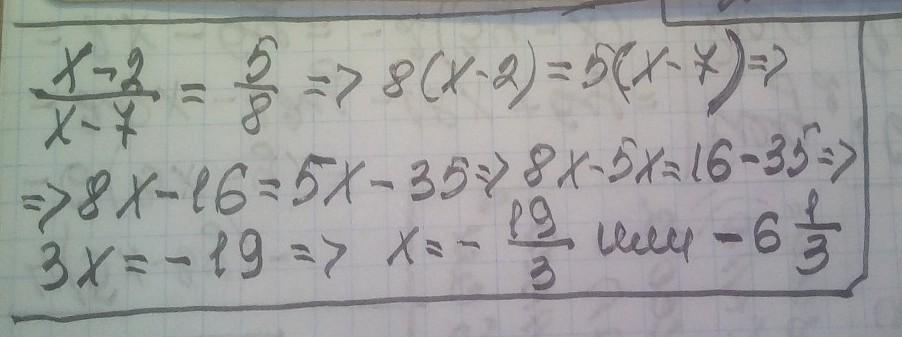 x-2/x-7 = 5/8 => 8(x-2)=5(x-7)=>
=>8x-16=5x-35=>8x-5x=16-35=>
3x=-19 => x=-19/3 или -6 1/3